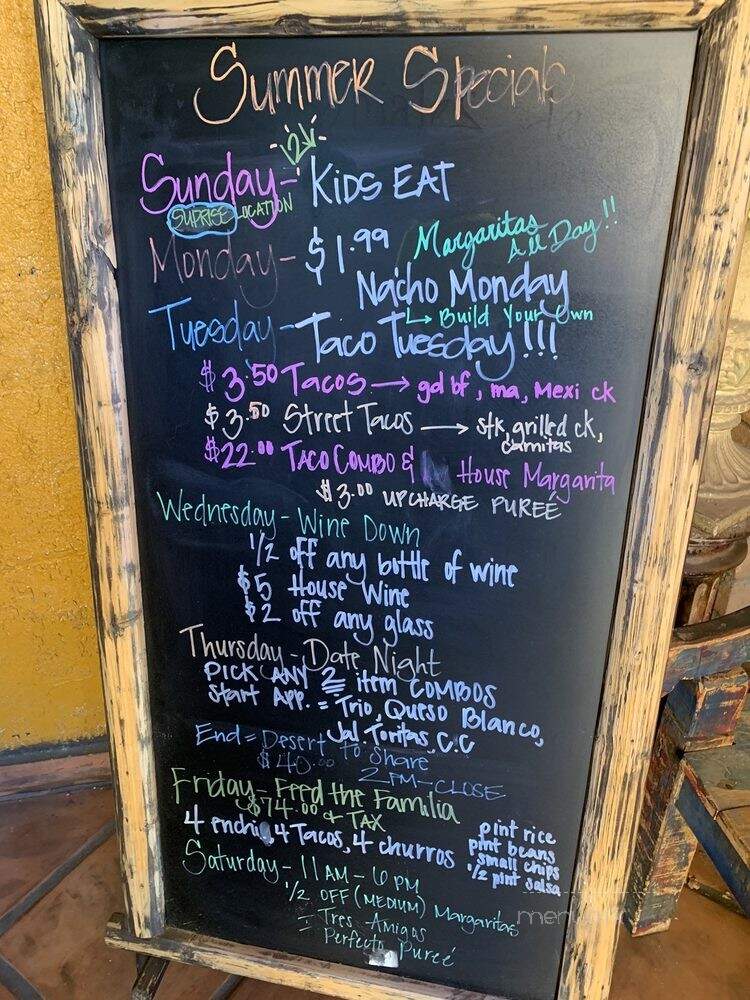 Summer Specials
Sunday - Kids Eat
2
Suprise Location
Monday - $1.99 Margaritas All Day!!
Nacho Monday
↳ Build Your Own
Tuesday - Taco Tuesday!!!
$3.50 Tacos → gd bf, ma, Mexi ck
$3.50 Street Tacos → stk, grilled ck,
carnitas
$22.00 Taco Combo & House Margarita
$3.00 Upcharge Pureé
Wednesday - Wine Down
1/2 off any bottle of wine
$5 House Wine
$2 off any glass
Thursday - Date Night
Pick any 2 item Combos
Start App. = Trio, Queso Blanco,
Jal. Toritas, C.C
End = Desert to Share
$40.00 2PM - Close
Friday - Feed the Familia
$74.00 & Tax
4 ench, 4 Tacos, 4 churros
pint rice
pint beans
small chips
1/2 pint salsa
Saturday - 11 AM - 6 PM
1/2 off (Medium) Margaritas
= Tres-Amigos
Perfecto Pureé